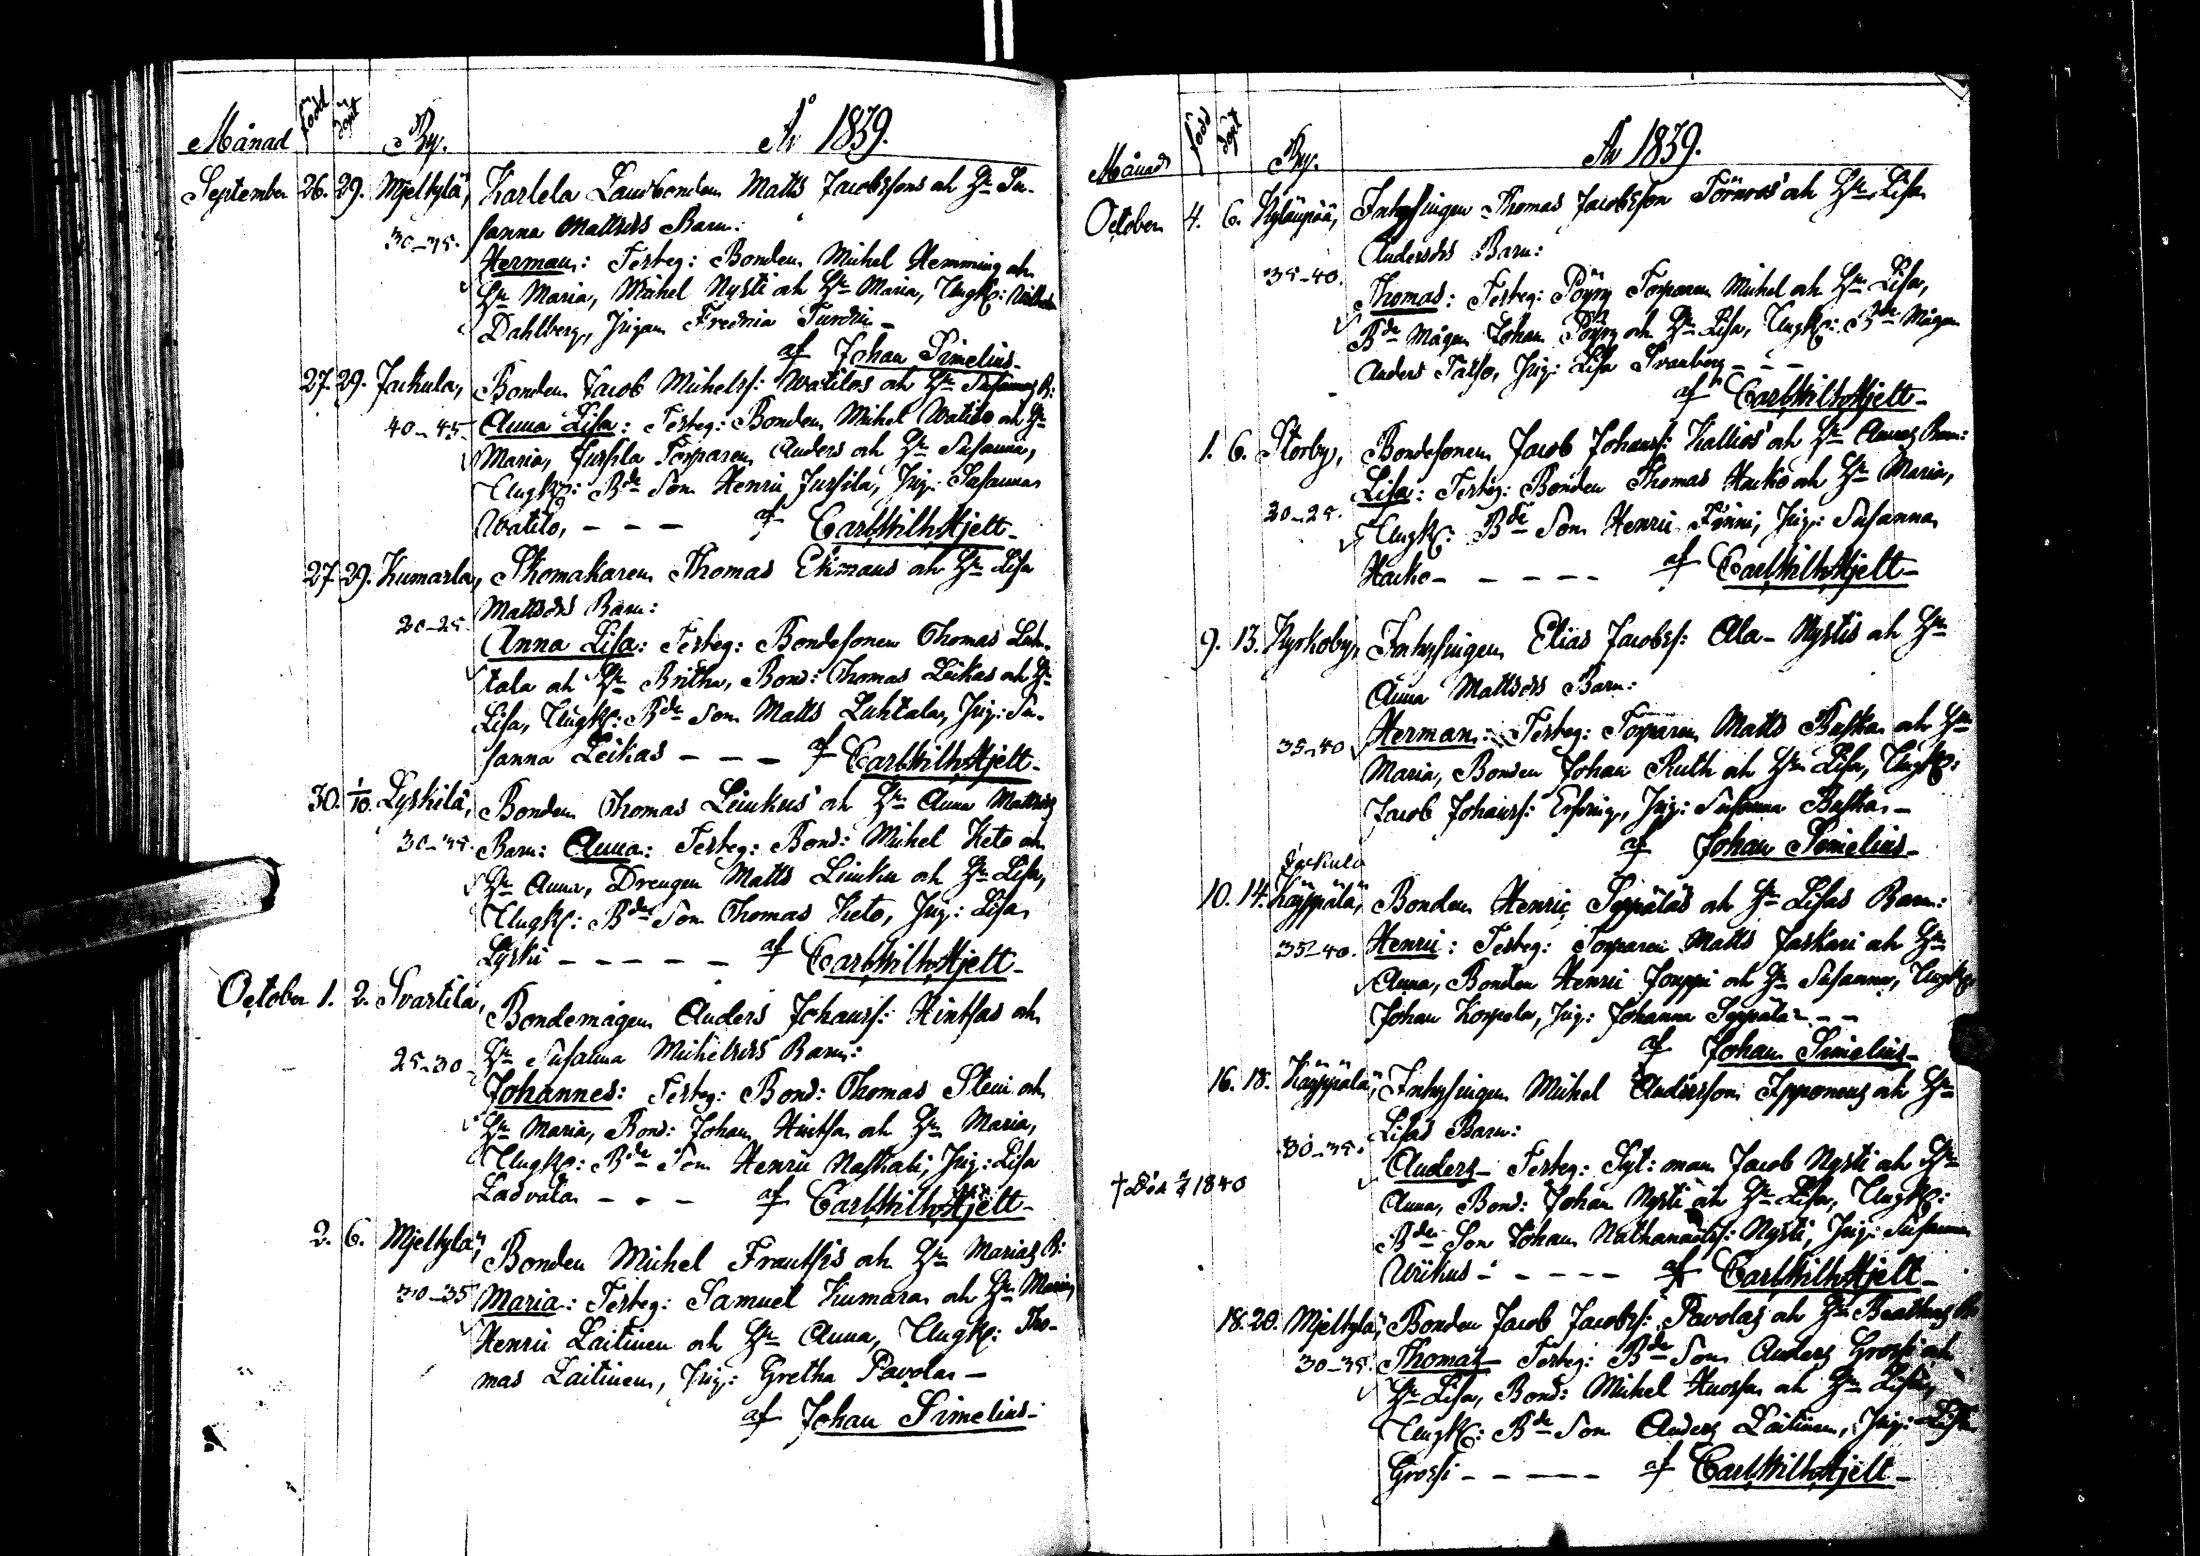 Månad född döpt By. År 1839.
September 26. 29. Mjelkylä, Karlela Landbonden Matts Jacobssons och H: Su-
sanna Mattsdrs Barn:
30-35. Herman: Testeg: Bonden Michel Hemming och
H: Maria, Michel Nysti och H: Maria, Ungk:
Dahlberg, Pigan Fredrica
af Johan Simelius-
27. 29. Jackula, Bonden Jacob Michelss: Watilos och H: Susannas B:
40-45. Anna Lisa: Testeg: Bonden Michel Watilo och H:
Maria, Jussila Torparen Anders och H: Susanna,
Ungk: Bde Son Henric Jussila, Pig: Susanna
Watilo, - - - af Carl Wilh Hjelt-
27. 29. Kumarla, Skomakaren Thomas Ekmans och H: Lisa
Mattsdrs Barn:
20-25 Anna Lisa: Testeg: Bondesonen Thomas Luh-
tala och H: Britha, Bond: Thomas Leikas och H:
Lisa, Ungk: Bde Son Matts Luhtala, Pig: Su-
sanna Leikas - - - af Carl Wilh Hjelt-
30. 1/10. Lyskilä, Bonden Thomas Liukus och H: Anna Mattsdrs
30-35. Barn: Anna: Testeg: Bond: Michel Keto och
H: Anna, Drengen Matts Liuku och H: Lisa,
Ungk: Bde Son Thomas Keto, Pig: Lisa
Lyski - - - - - af Carl Wilh Hjelt-
October 1. 2. Svartila, Bondemågen Anders Johanss: Hintsas och
25-30 H: Susanna Michelsdrs Barn:
Johannes: Testeg: Bond: Thomas Steni och
H: Maria, Bond: Johan Hintsa och H: Maria,
Ungk: Bde Son Henric Nathali, Pig: Lisa
Ladvala - - - af Carl Wilh Hjelt-
2. 6. Mjelkylä, Bonden Michel Frantsis och H: Marias B:
30-35 Maria: Testeg: Samuel Kumara och H: Maria,
Henric Laitinen och H: Anna, Ungk: Tho-
mas Laitinen, Pig: Gretha Pavola -
af Johan Simelius-
Månad född döpt By. År 1839.
October 4. 6. Kyläupää, Inhysingen Thomas Jacobsson Törnroos och H: Lisa
Andersdrs Barn:
35-40. Thomas: Testeg: Pöyry Torparen Michel och H: Lisa,
Bde Mågen Johan Pöyry och H: Lisa, Ungk: Bde Mågen
Anders Talso, Pig: Lisa Svanberg - - -
af Carl Wilh Hjelt-
1. 6. Storby, Bondesonen Jacob Johanss: Kallios och H: Annas Barn:
Lisa: Testeg: Bonden Thomas Harko och H: Maria,
20-25. Ungk: Bde Son Henric Finni, Pig: Susanna
Harko - - - - - af Carl Wilh Hjelt-
9. 13. Kyrkoby, Inhysingen Elias Jacobss: Ala-Nystis och H:
Anna Mattsdrs Barn:
35-40 Herman: Testeg: Torparen Matts Buska och H:
Maria, Bonden Johan Ruth och H: Lisa, Ungk:
Jacob Johanss: Pig: Susanna Buska -
af Johan Simelius-
Jackula
10. 14. Käppälä, Bonden Henric Seppäläs och H: Lisas Barn:
35-40. Henric: Testeg: Torparen Matts Jaskari och H:
Anna, Bonden Henric Jouppi och H: Susanna, Ungk:
Johan Korpela, Pig: Johanna Seppälä - - -
af Johan Simelius-
16. 18. Käppälä, Inhysingen Michel Andersson Ipponens och H:
Lisas Barn:
30-35. Anders - Testeg: Syt: man Jacob Nysti och H:
† 1840 Anna, Bond: Johan Nysti och H: Lisa, Ungk:
Bde Son Johan Nathanaelss: Nysti, Pig: Susanna
- - - - - af Carl Wilh Hjelt-
18. 20. Mjelkylä, Bonden Jacob Jacobss: Pavolas och H: Beathas
30-35. Thomas - Testeg: Bde Son Anders Grossi och
H: Lisa, Bond: Michel Huossa och H: Lisa,
Ungk: Bde Son Anders Laitinen, Pig: Lisa
Grossi - - - - - af Carl Wilh Hjelt-